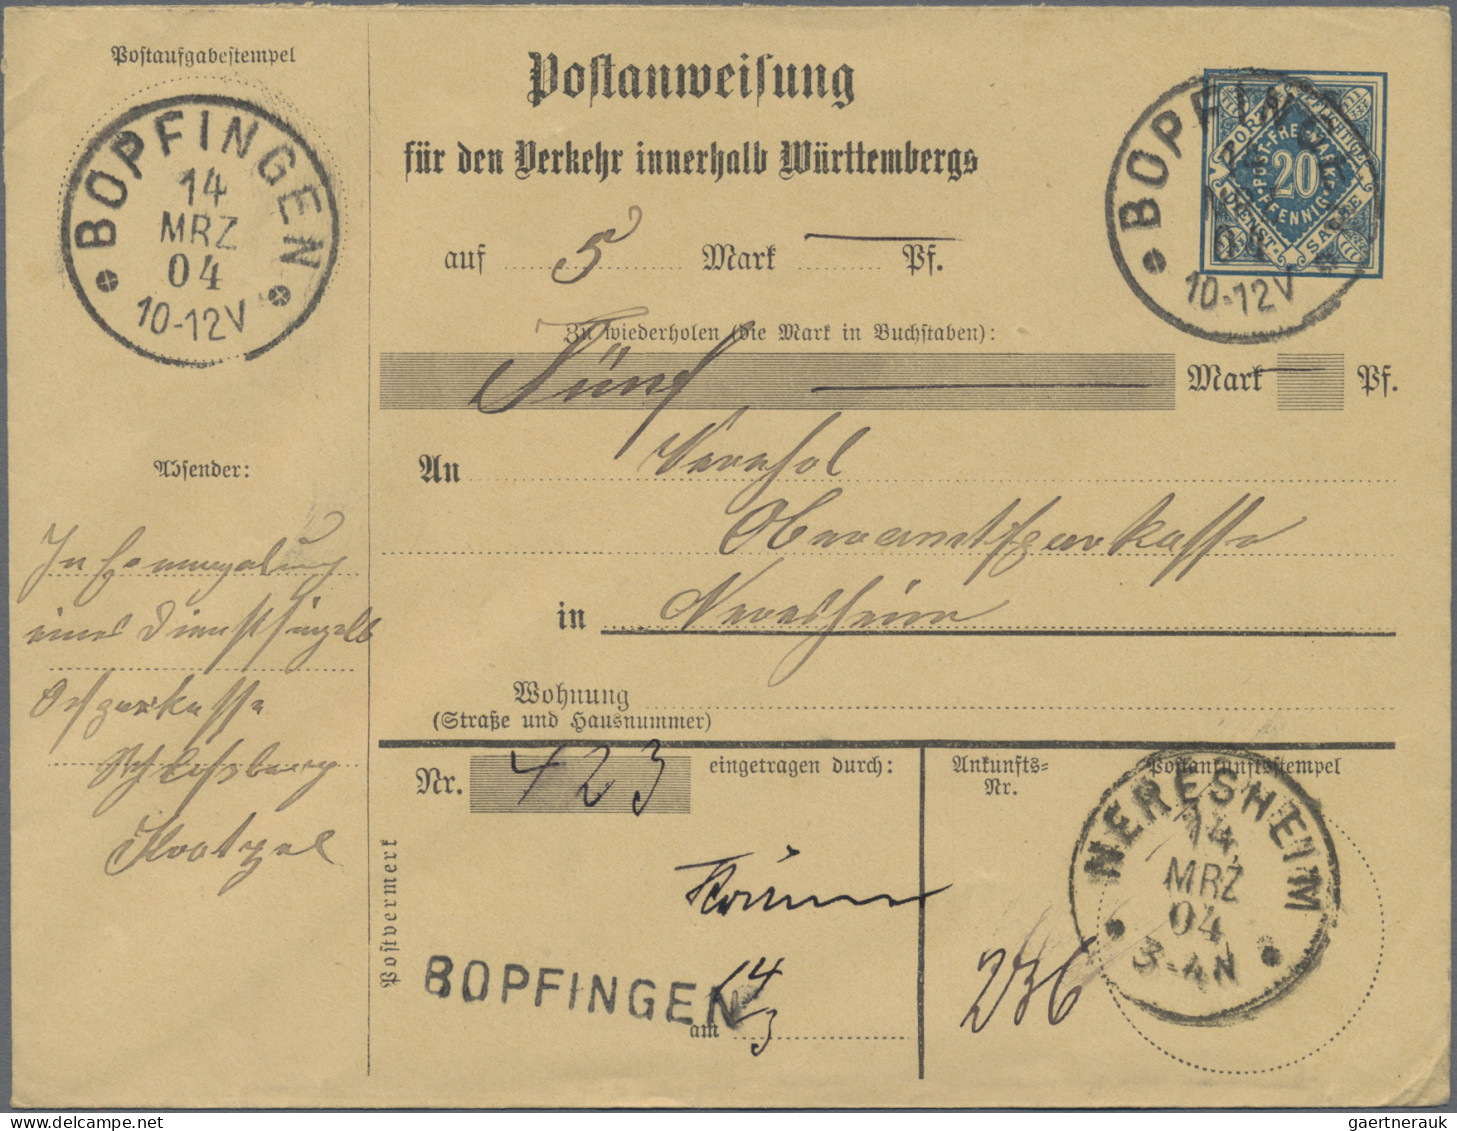 Postaufgabestempel
BOPFINGEN
14
MRZ
04
10-12V
Postanweisung
für den Verkehr innerhalb Württembergs
auf 5 Mark Pf.
BOPFINGEN
04
10-12V
PORTOPFLICHTIGE
DIENST-SACHE
POST-FREIMARKE
20
PFENNIG
Zu wiederholen (die Mark in Buchstaben):
Fünf Mark Pf.
Absender:
An
Oberamtssparkasse
in Neresheim
eines Dienstsiegels
Wohnung
(Straße und Hausnummer)
Nr. 423 eingetragen durch:
Ankunfts-
Nr.
Postankunftsstempel
NERESHEIM
14
MRZ
04
3-4N
Postvermerk
BOPFINGEN
am 14/3
236
gaertnerauk